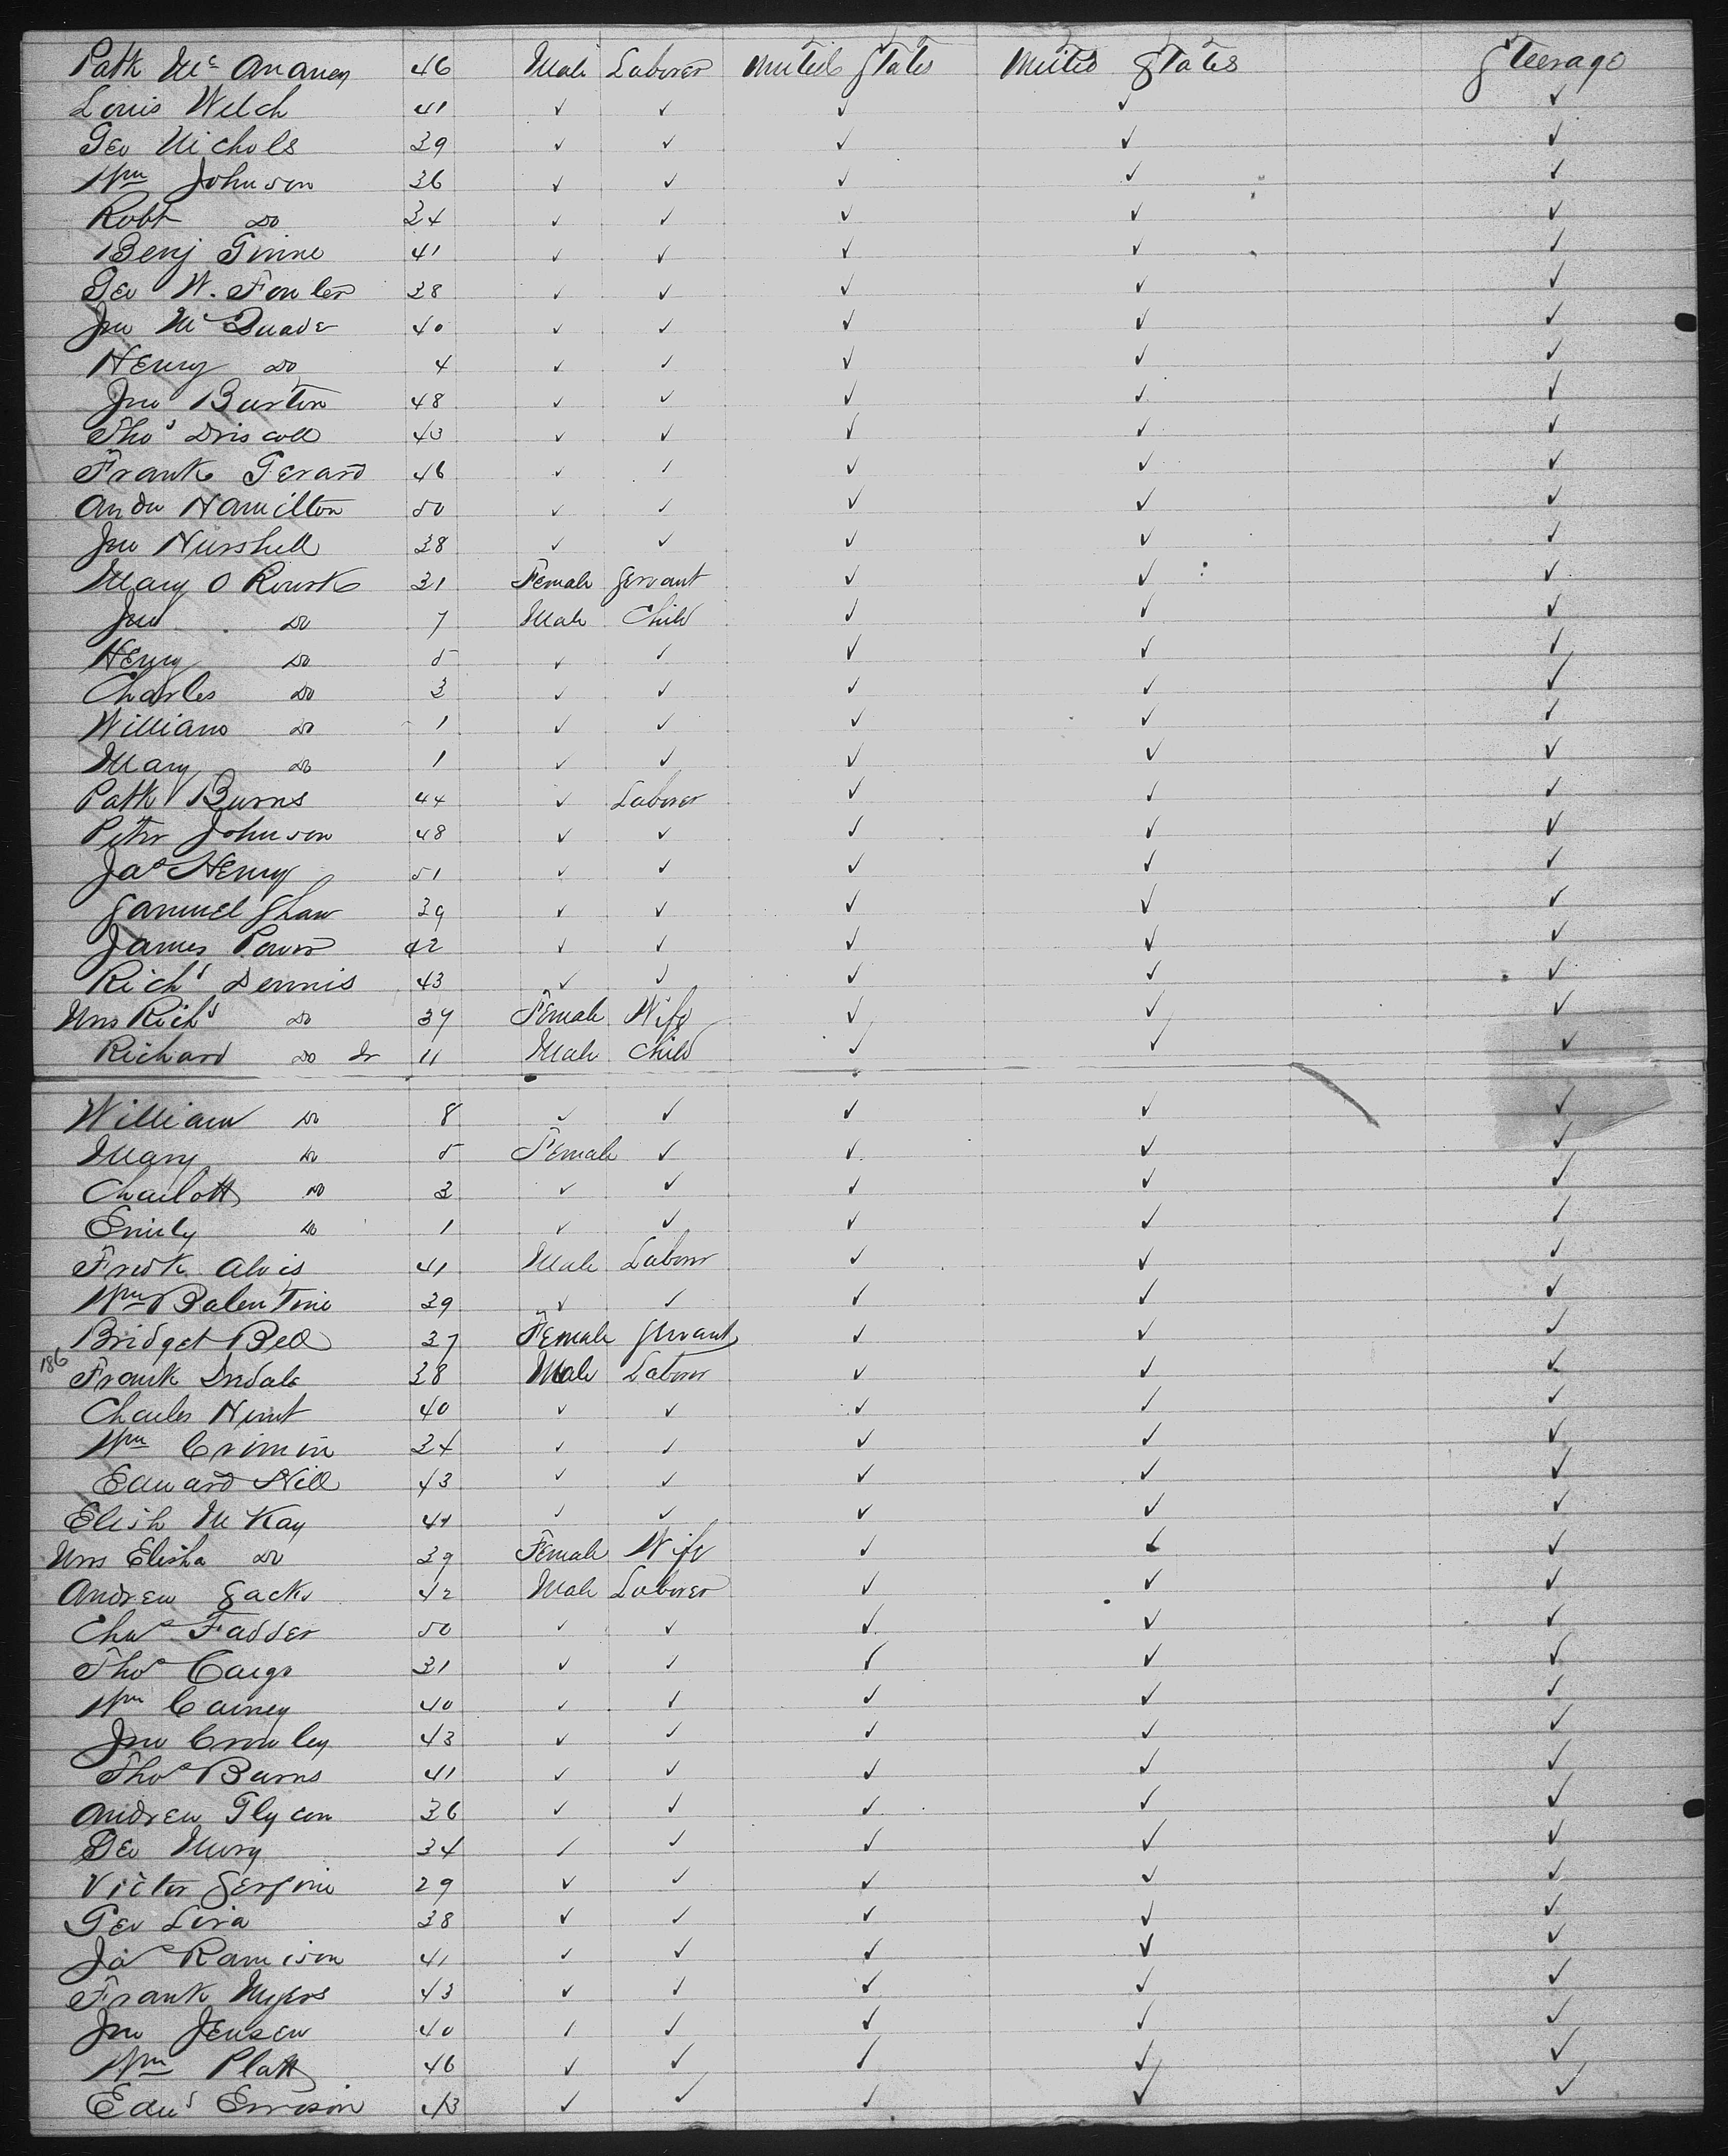 Patk Mc Ananey 46 Male Laborer United States United States Steerage
Louis Welch 41 ✓ ✓ ✓ ✓ ✓
Geo Nichols 39 ✓ ✓ ✓ ✓ ✓
Wm Johnson 36 ✓ ✓ ✓ ✓ ✓
Robt Do 34 ✓ ✓ ✓ ✓ ✓
Benj 41 ✓ ✓ ✓ ✓ ✓
Geo W. Fowler 38 ✓ ✓ ✓ ✓ ✓
Jno McQuade 40 ✓ ✓ ✓ ✓ ✓
Henry Do 4 ✓ ✓ ✓ ✓ ✓
Jno Burton 48 ✓ ✓ ✓ ✓ ✓
Thos Driscoll 43 ✓ ✓ ✓ ✓ ✓
Frank Gerard 46 ✓ ✓ ✓ ✓ ✓
Andw Hamilton 50 ✓ ✓ ✓ ✓ ✓
Jno 38 ✓ ✓ ✓ ✓ ✓
Mary O Rourke 31 Female Servant ✓ ✓ ✓
Jno Do 7 Male Child ✓ ✓ ✓
Henry Do 5 ✓ ✓ ✓ ✓ ✓
Charles Do 3 ✓ ✓ ✓ ✓ ✓
William Do 1 ✓ ✓ ✓ ✓ ✓
Mary Do 1 ✓ ✓ ✓ ✓ ✓
Patk Burns 44 ✓ Laborer ✓ ✓ ✓
Peter Johnson 48 ✓ ✓ ✓ ✓ ✓
Jas Henry 51 ✓ ✓ ✓ ✓ ✓
Samuel Shaw 39 ✓ ✓ ✓ ✓ ✓
James Power 42 ✓ ✓ ✓ ✓ ✓
Richd Dennis 43 ✓ ✓ ✓ ✓ ✓
Mrs Richd Do 37 Female Wife ✓ ✓ ✓
Richard Do Jr 11 Male Child ✓ ✓ ✓
William Do 8 ✓ ✓ ✓ ✓ ✓
Mary Do 5 Female ✓ ✓ ✓ ✓
Charlott Do 3 ✓ ✓ ✓ ✓ ✓
Emily Do 1 ✓ ✓ ✓ ✓ ✓
Fredk Alvis 41 Male Laborer ✓ ✓ ✓
Wm Balentine 39 ✓ ✓ ✓ ✓ ✓
Bridget Bell 37 Female Servant ✓ ✓ ✓
186 Frank 38 Male Laborer ✓ ✓ ✓
Charles Hunt 40 ✓ ✓ ✓ ✓ ✓
Wm Crimin 34 ✓ ✓ ✓ ✓ ✓
Edward Hill 43 ✓ ✓ ✓ ✓ ✓
Elish McKay 41 ✓ ✓ ✓ ✓ ✓
Mrs Elisha Do 39 Female Wife ✓ ✓ ✓
Andrew Sacks 42 Male Laborer ✓ ✓ ✓
Chas Fadder 50 ✓ ✓ ✓ ✓ ✓
Thos Cargo 31 ✓ ✓ ✓ ✓ ✓
Wm Carney 40 ✓ ✓ ✓ ✓ ✓
Jno Crowley 43 ✓ ✓ ✓ ✓ ✓
Thos Burns 41 ✓ ✓ ✓ ✓ ✓
Andrew Glycon 36 ✓ ✓ ✓ ✓ ✓
Geo Mury 34 ✓ ✓ ✓ ✓ ✓
Victor 29 ✓ ✓ ✓ ✓ ✓
Geo Lira 38 ✓ ✓ ✓ ✓ ✓
Jas Ramison 41 ✓ ✓ ✓ ✓ ✓
Frank Myers 43 ✓ ✓ ✓ ✓ ✓
Jno Jensen 40 ✓ ✓ ✓ ✓ ✓
Wm Platt 46 ✓ ✓ ✓ ✓ ✓
Edwd Errison 43 ✓ ✓ ✓ ✓ ✓